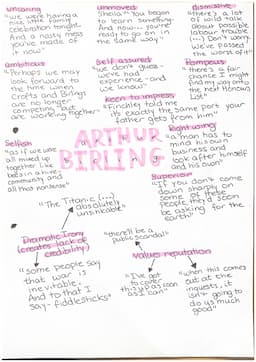 uncaring
"we were having a nice little family celebration tonight. And a nasty mess you've made of it now"
unmoved
Sheila - "You began to learn something. And now... you're ready to go on in the same way"
dismissive
"there's a lot of wild talk about possible labour trouble (...) Don't worry. We've passed the worst of it"
ambitious
"Perhaps we may look forward to the time when Crofts and Birlings are no longer competing but are working together"
Self assured
"we don't guess - we've had experience - and we know"
Pompous
"there's a fair chance I might find my way onto the next Honours List"
keen to impress
"Finchley told me it's exactly the same port your father gets from him"
ARTHUR
BIRLING
Selfish
"as if we were all mixed up together like bees in a hive - community and all that nonsense"
"a man has to mind his own business and look after himself and his own"
Superior
"If you don't come down sharply on some of these people, they'd soon be asking for the earth"
"The Titanic (...) absolutely unsinkable"
Dramatic Irony
(creates lack of
credibility)
"some people say that war is inevitable. And to that I say - fiddlesticks"
"there'll be a public scandal"
Values reputation
"I've got to cover this up as soon as I can"
"when this comes out at the inquest, it isn't going to do us much good"